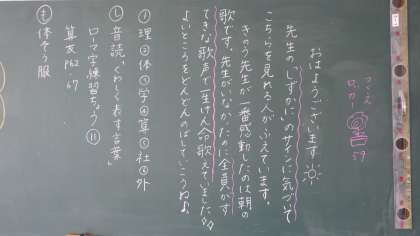 つくえ
ロッカー
59
おはようございます
先生の「しずかに」のサインに気づいて
こちらを見れる人がふえています。
きのう先生が一番感動したのは朝の
歌です。先生がいなかったのに全員がす
てきな歌声で一生けん命歌えていました
よいところをどんどんのばしていこうね
①理②体③学④算⑤社⑥外
し 音読「くわしく表す言葉」
ローマ字練習ちょう⑪
算友P62・67
も 体そう服